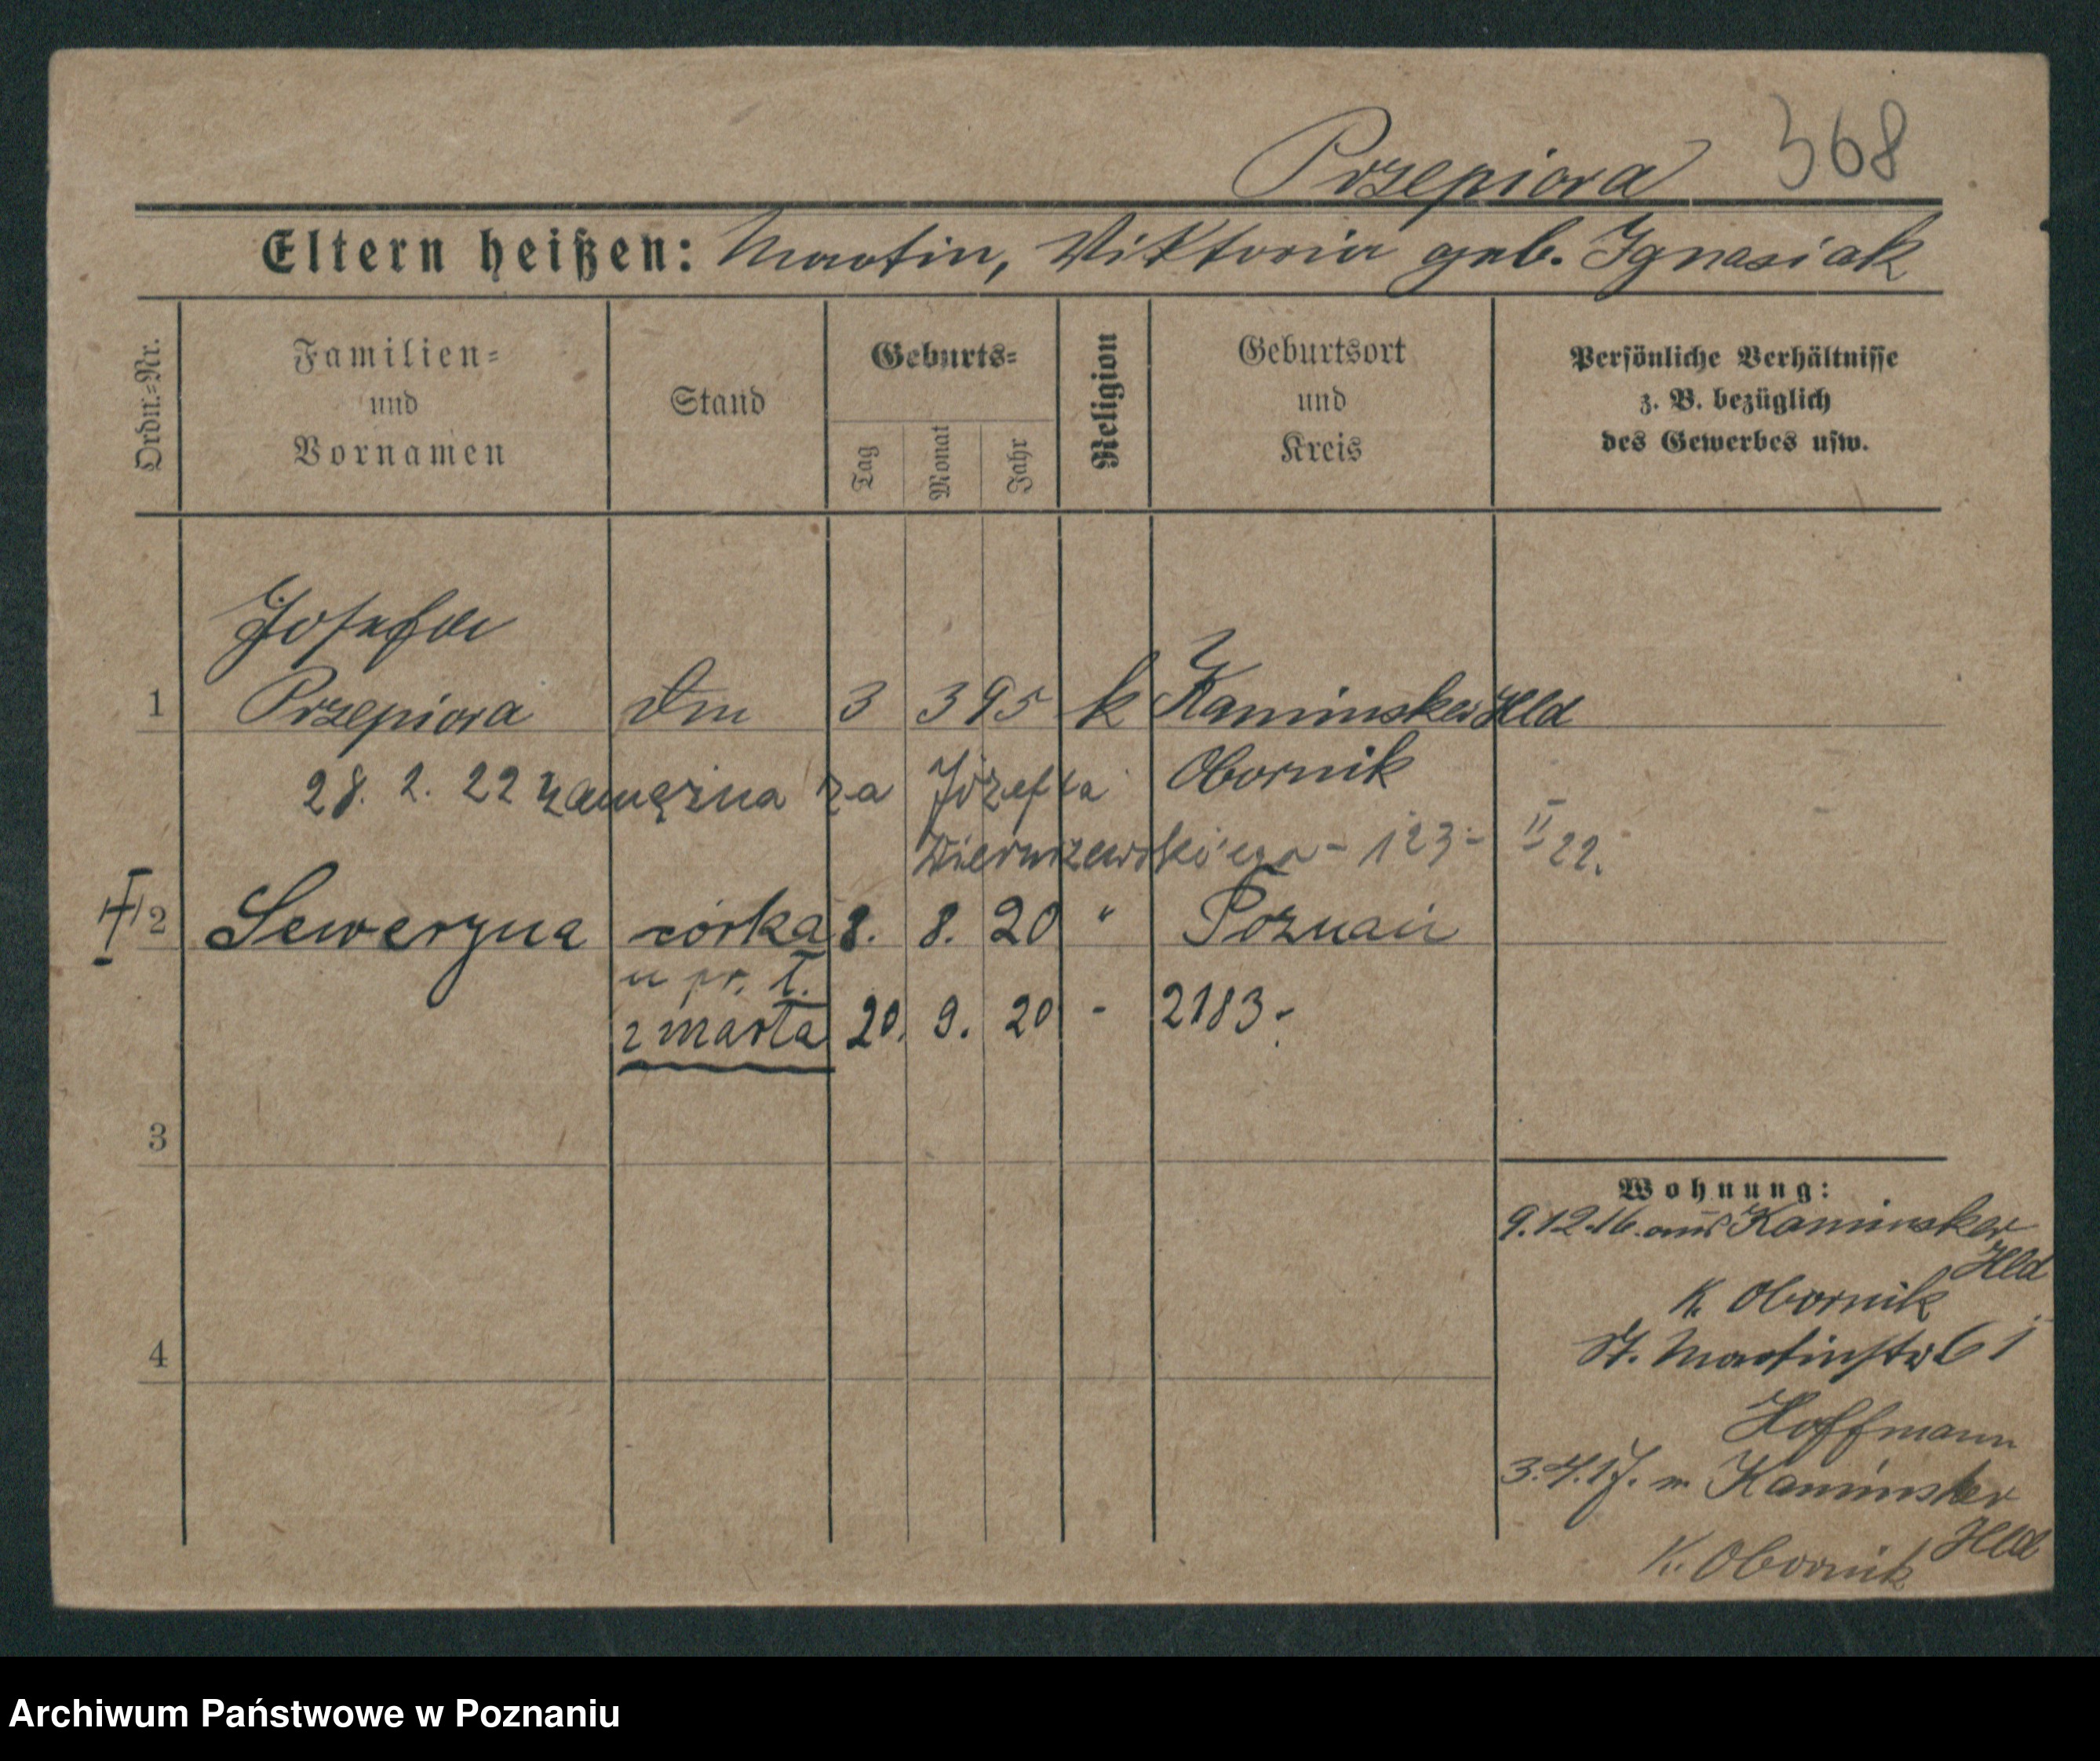 Przepiora 368
Eltern heißen: Martin, Viktoria geb. Ignasiak
Ordn.=Nr.
Familien=
und
Vornamen
Stand
Geburts=
Tag
Monat
Jahr
Religion
Geburtsort
und
Kreis
Persönliche Verhältnisse
z. B. bezüglich
des Gewerbes usw.
Josefa
1 Przepiora Dm 3 3 95 k Kaminsker Hld
Obornik
28. 2. 22 zamężna za Józefa
- 123 - II 22.
2 Seweryna córka 8. 8. 20 " Poznań
zmarła 20. 9. 20 - 2183.-
3
4
Wohnung:
9.12.16. aus Kaminsker
Hld
K. Obornik
St. Martinstr 61
Hoffmann
3.4.17. n. Kaminsker
Hld
K. Obornik
Archiwum Państwowe w Poznaniu